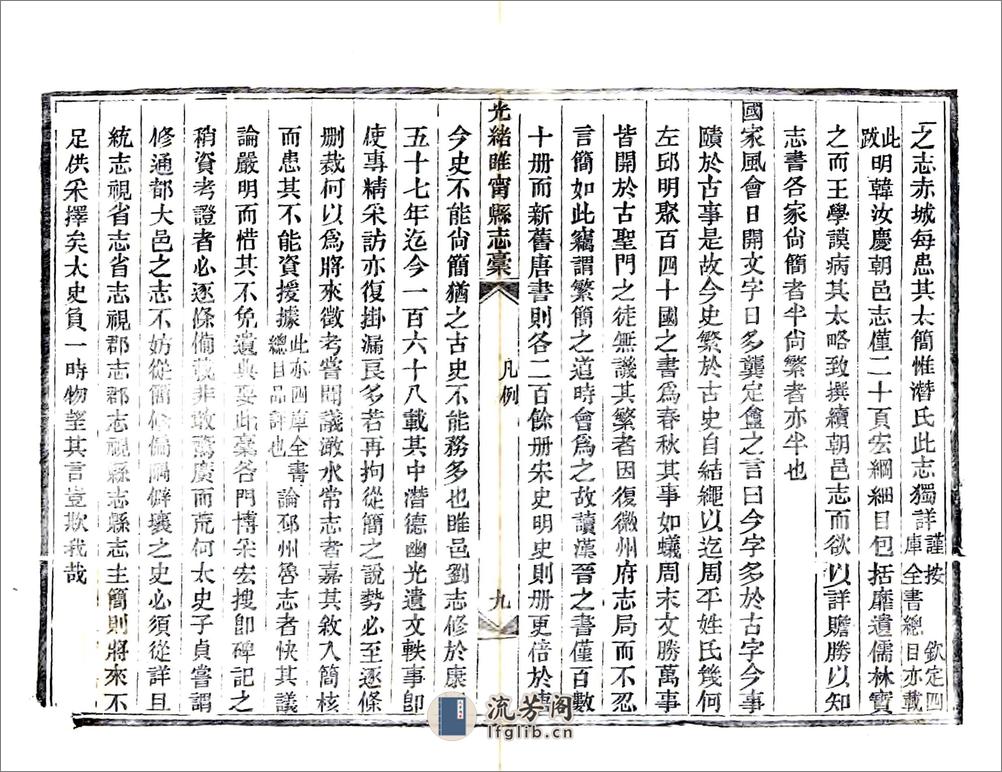 之志赤城每患其太簡惟潛氏此志獨詳謹按 欽定四庫全書總目亦載
此跋明韓汝慶朝邑志僅二十頁宏綱細目包括靡遺儒林寶
之而王學謨病其太略致撰續朝邑志而欲以詳贍勝以知
志書各家尚簡者半尚繁者亦半也
國家風會日開文字日多龔定盦之言曰今字多於古字今事
賾於古事是故今史繁於古史自結繩以迄周平姓氏幾何
左邱明聚百四十國之書為春秋其事如蟻周末文勝萬事
皆開於古聖門之徒無譏其繁者因復徽州府志局而不忍
言簡如此竊謂繁簡之道時會為之故讀漢晉之書僅百數
十册而新舊唐書則各二百餘册宋史明史則册更倍於唐
光緒睢寧縣志稾 凡例 九
今史不能尚簡猶之古史不能務多也睢邑劉志修於康熙
五十七年迄今一百六十八載其中潛德幽光遺文軼事卽
使專精采訪亦復掛漏良多若再拘從簡之說勢必至逐條
删裁何以為將來徵考嘗聞議澉水常志者嘉其敘入簡核
而患其不能資援據此亦四庫全書總目品評也論邳州魯志者快其議
論嚴明而惜其不免遺典要此稾各門博采宏搜卽碑記之
稍資考證者必逐條備載非敢蕪廣而荒何太史子貞嘗謂
修通都大邑之志不妨從簡修偏隅僻壤之史必須從詳且
統志視省志省志視郡志郡志視縣志縣志主簡則將來不
足供采擇矣太史負一時物望其言豈欺我哉
流芳阁
lfglib.cn